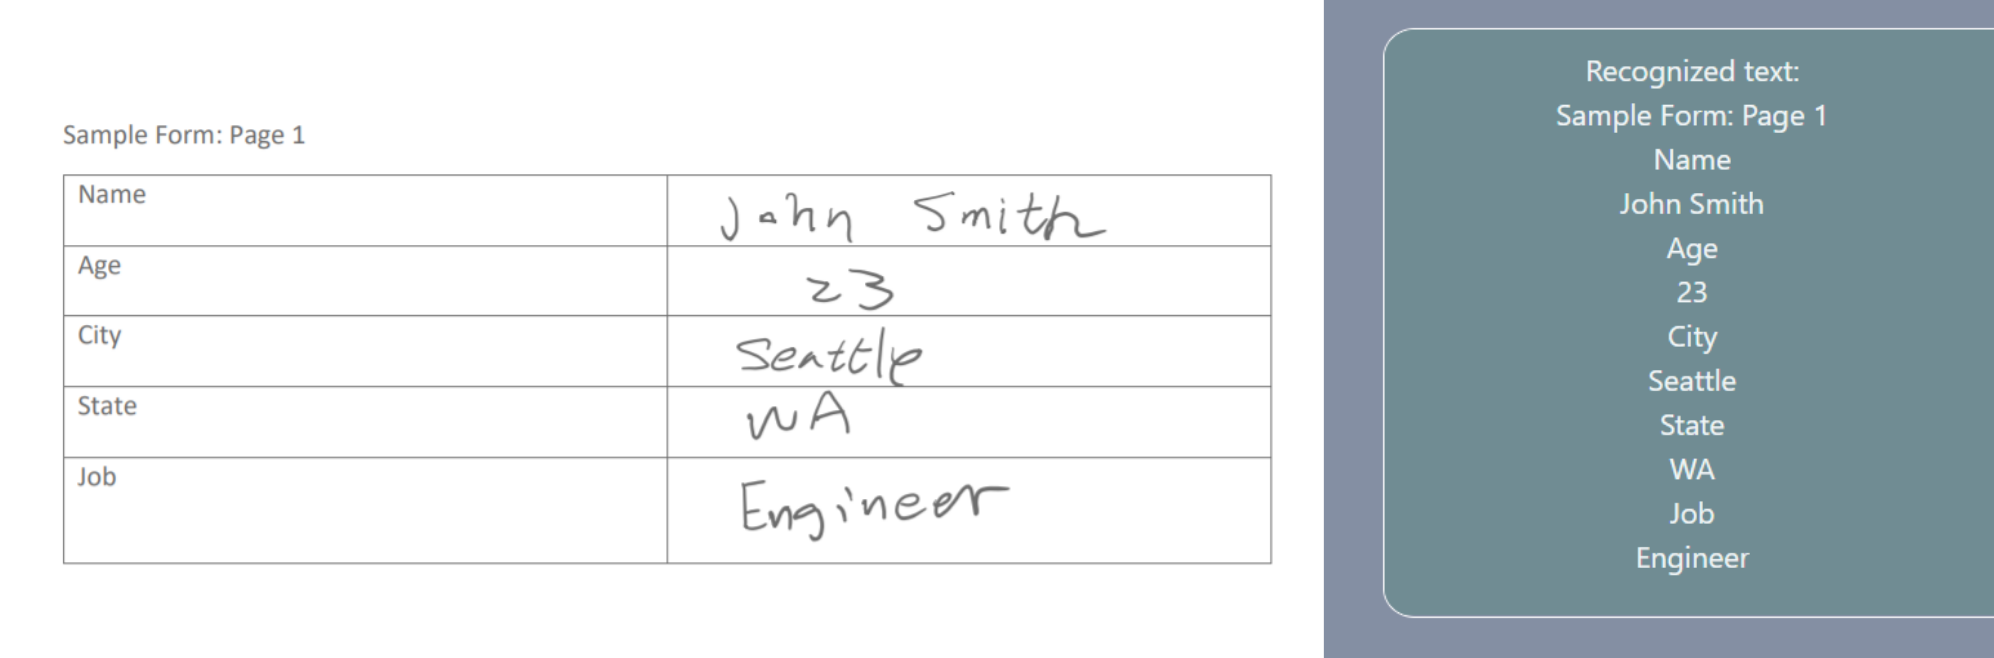 Sample Form: Page 1
Name John Smith
Age 23
City Seattle
State WA
Job Engineer
Recognized text:
Sample Form: Page 1
Name
John Smith
Age
23
City
Seattle
State
WA
Job
Engineer